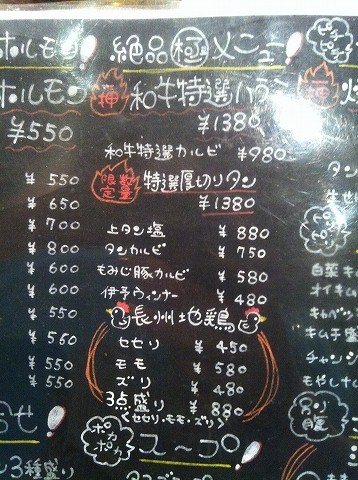 ホルモン
ホルモン
¥550
¥550
¥650
¥700
¥800
¥600
¥600
¥550
¥550
¥550
¥550
3種盛り
絶品 極 メニュー
和牛特選ハラ
¥1380
和牛特選カルビ ¥980
数量限定 特選厚切りタン
¥1380
上タン塩 ¥880
タンカルビ ¥750
もみじ豚カルビ ¥580
伊予ウィンナー ¥480
長州地鶏
セセリ ¥450
モモ ¥580
ズリ ¥480
3点盛り ¥880
(セセリ・モモ・ズリ)
ポカポカ スープ
タン
白菜キ
オイキム
キャベツ
キムチ盛
チャンジ
もやしナ